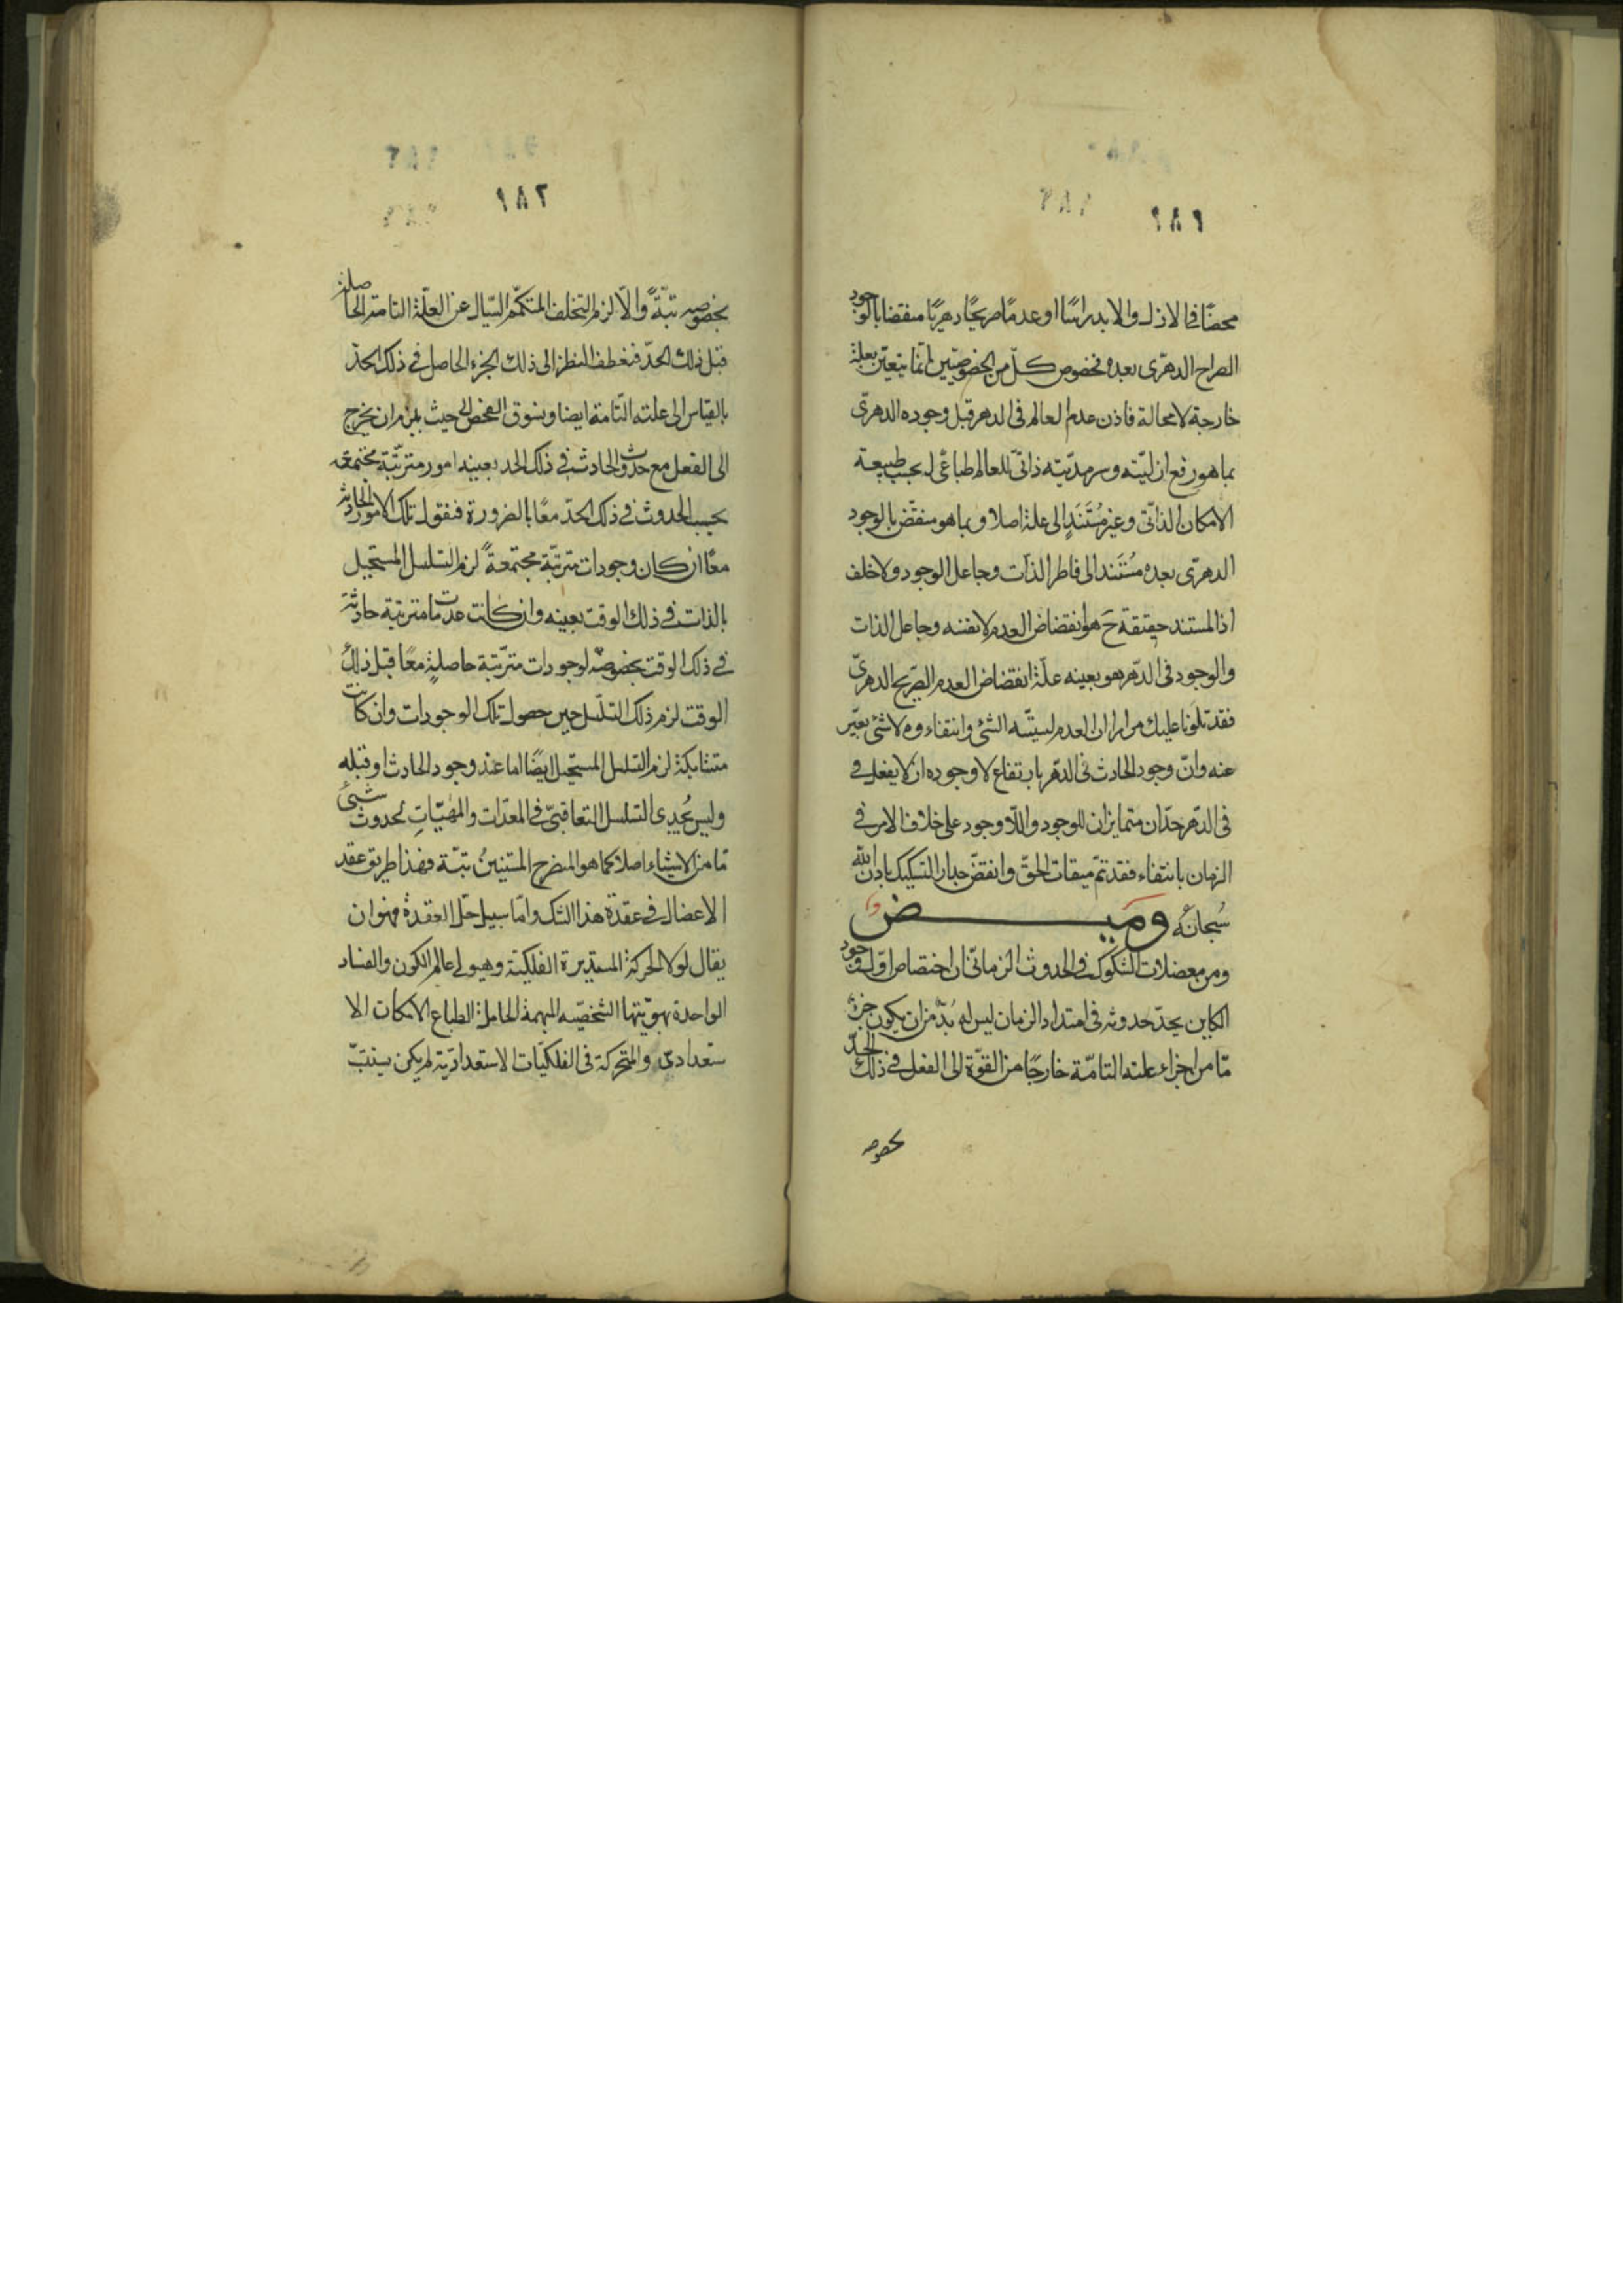 ١٨١
محضا فى الازل والابد راسا او عدما صريحا دهريا منقضا بالوجود
الصراح الدهرى بعده فخصوص كل من الخصوصيتين انما يتعين بعلة
خارجة لا محالة فاذن عدم العالم فى الدهر قبل وجوده الدهرى
بما هو رفع ازليته وسرمديته ذاتى للعالم طباعى له بحسب طبيعة
الامكان الذاتى وغير مُستَنَدٍ الى علة اصلا وبما هو منقض بالوجود
الدهرى بعده مُستَند الى فاطر الذات وجاعل الوجود ولا خلف
اذ المستند حقيقة ح هو انقضاض العدم لا نفسه وجاعل الذات
والوجود فى الدهر هو بعينه علة انقضاض العدم الصريح الدهرى
فقد تلونا عليك مرارا ان العدم ليسية الشئ وانتفاءه لا شئ يعبر
عنه وان وجود الحادث فى الدهر بارتفاع لا وجوده اذ لا يعقل فى
فى الدهر حدان متمايزان للوجود واللاوجود على خلاف الامر فى
الزمان بانتفاء فقد تم ميقات الحق وانقض جدار التشكيك باذن الله
سُبحانه ومَيــض
ومن معضلات الشكوك فى الحدوث الزمانى ان اختصاص اول وجود
الكاين بحد حدوثه فى امتداد الزمان ليس له بُدّ من ان يكون جزءٌ
مّا من اجزاء علته التامّة خارجًا من القوّة الى الفعل فى ذلك الحدّ
بخصوصه
١٨٢
بخصوصه بتّةً والّا لزم التخلف المتكمّم السّيال عن العلّة التامة الحاصلة
قبل ذلك الحدّ فنعطف النظر الى ذلك الجزء الحاصل فى ذلك الحدّ
بالقياس الى علته التّامة ايضا ونسوق الفحص الى حيث يلزم ان يخرج
الى الفعل مع حدوث الحادث فى ذلك الحد بعينه امور مترتّبة مجتمعة
بحسب الحدوث فى ذلك الحدّ معًا بالضرورة فنقول تلك الامور الحادثة
معًا ان كان وجودات مترتبّة مجتمعةً لزم التسلسل المستحيل
بالذات فى ذلك الوقت بعينه وان كانت عدمات مترتبة حادثة
فى ذلك الوقت بخصوصه لوجودات مترتّبة حاصلةٍ معًا قبل ذلك
الوقت لزم ذلك التسلسل حين حصول تلك الوجودات وان كانت
متشابكة لزم التسلسل المستحيل ايضًا اما عند وجود الحادث او قبله
وليس يُجدِى التسلسل التعاقبىّ فى المعدّات والمهيّئاتِ لحدوث شئ
مّا من الاشياء اصلا كما هو المصرح المستبينُ بتّة فهذا طريق عقد
الاعضال فى عقدة هذا الشك وامّا سبيل حلّ العقدة فهو ان
يقال لولا الحركة المستديرة الفلكيّة وهيولى عالم الكون والفساد
الواحدة بهويّتها الشخصيّه المبهمة الحاملة لطباع الامكان الا
ستعدادىّ والمتحركة فى الفلكيّات الاستعداديّة لم يكن يستتبّ